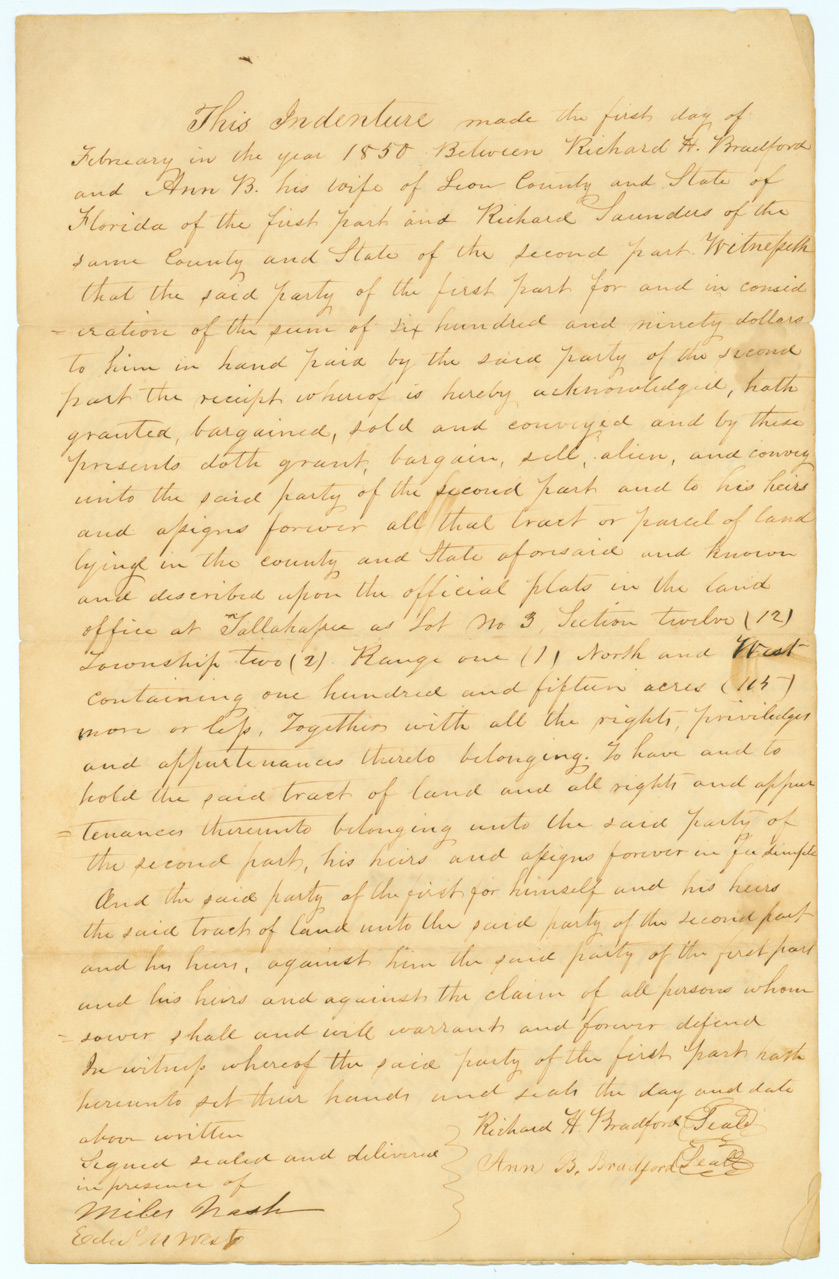 This Indenture made the first day of
February in the year 1850 Between Richard H. Bradford
and Ann B. his wife of Leon County and State of
Florida of the first part and Richard Saunders of the
same County and State of the second part. Witnesseth
that the said party of the first part for and in consid
=eration of the sum of six hundred and ninety dollars
to him in hand paid by the said party of the second
part the receipt whereof is hereby acknowledged, hath
granted, bargained, sold and conveyed and by these
presents doth grant, bargain, sell, alien, and convey
unto the said party of the second part and to his heirs
and assigns forever all that tract or parcel of land
lying in the county and State aforesaid and known
and described upon the official plats in the land
office at Tallahassee as Lot No 3, Section twelve (12)
Township two (2) Range one (1) North and West
containing one hundred and fifteen acres (115)
more or less, Together with all the rights, priviledges
and appurtenances thereto belonging. To have and to
hold the said tract of land and all rights and appur
=tenances thereunto belonging unto the said party of
the second part, his heirs and assigns forever in fee simple
And the said party of the first for himself and his heirs
the said tract of land unto the said party of the second part
and his heirs, against him the said party of the first part
and his heirs and against the claim of all persons whom
=soever shall and will warrant and forever defend
In witness whereof the said party of the first part hath
hereunto set their hands and seals the day and date
above written
Richard H Bradford (Seal)
Signed sealed and delivered
in presence of
Ann B. Bradford (Seal)
Miles Nash
Edwd M West